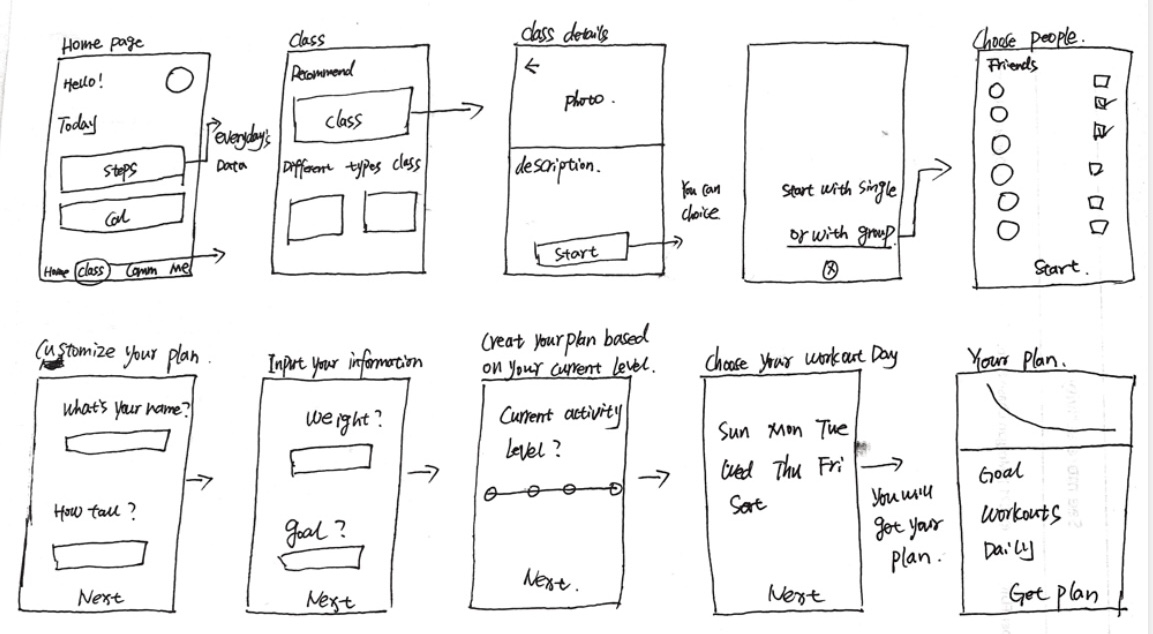 Home page
Hello!
Today
Steps
Cal
Home class Comm Me
everyday's
Data
Class
Recommend
class
Different types class
class details
photo.
description.
Start
You can
choice
Start with Single
or with group.
Choose people.
Friends
Start.
Customize your plan.
What's your name?
How tall?
Next
Input your information
Weight?
Goal?
Next
Creat your plan based
on your current level.
Current activity
Level?
Next.
Choose your workout Day
Sun Mon Tue
Wed Thu Fri
Sat
Next
You will
get your
plan.
Your plan.
Goal
Workouts
Daily
Get plan